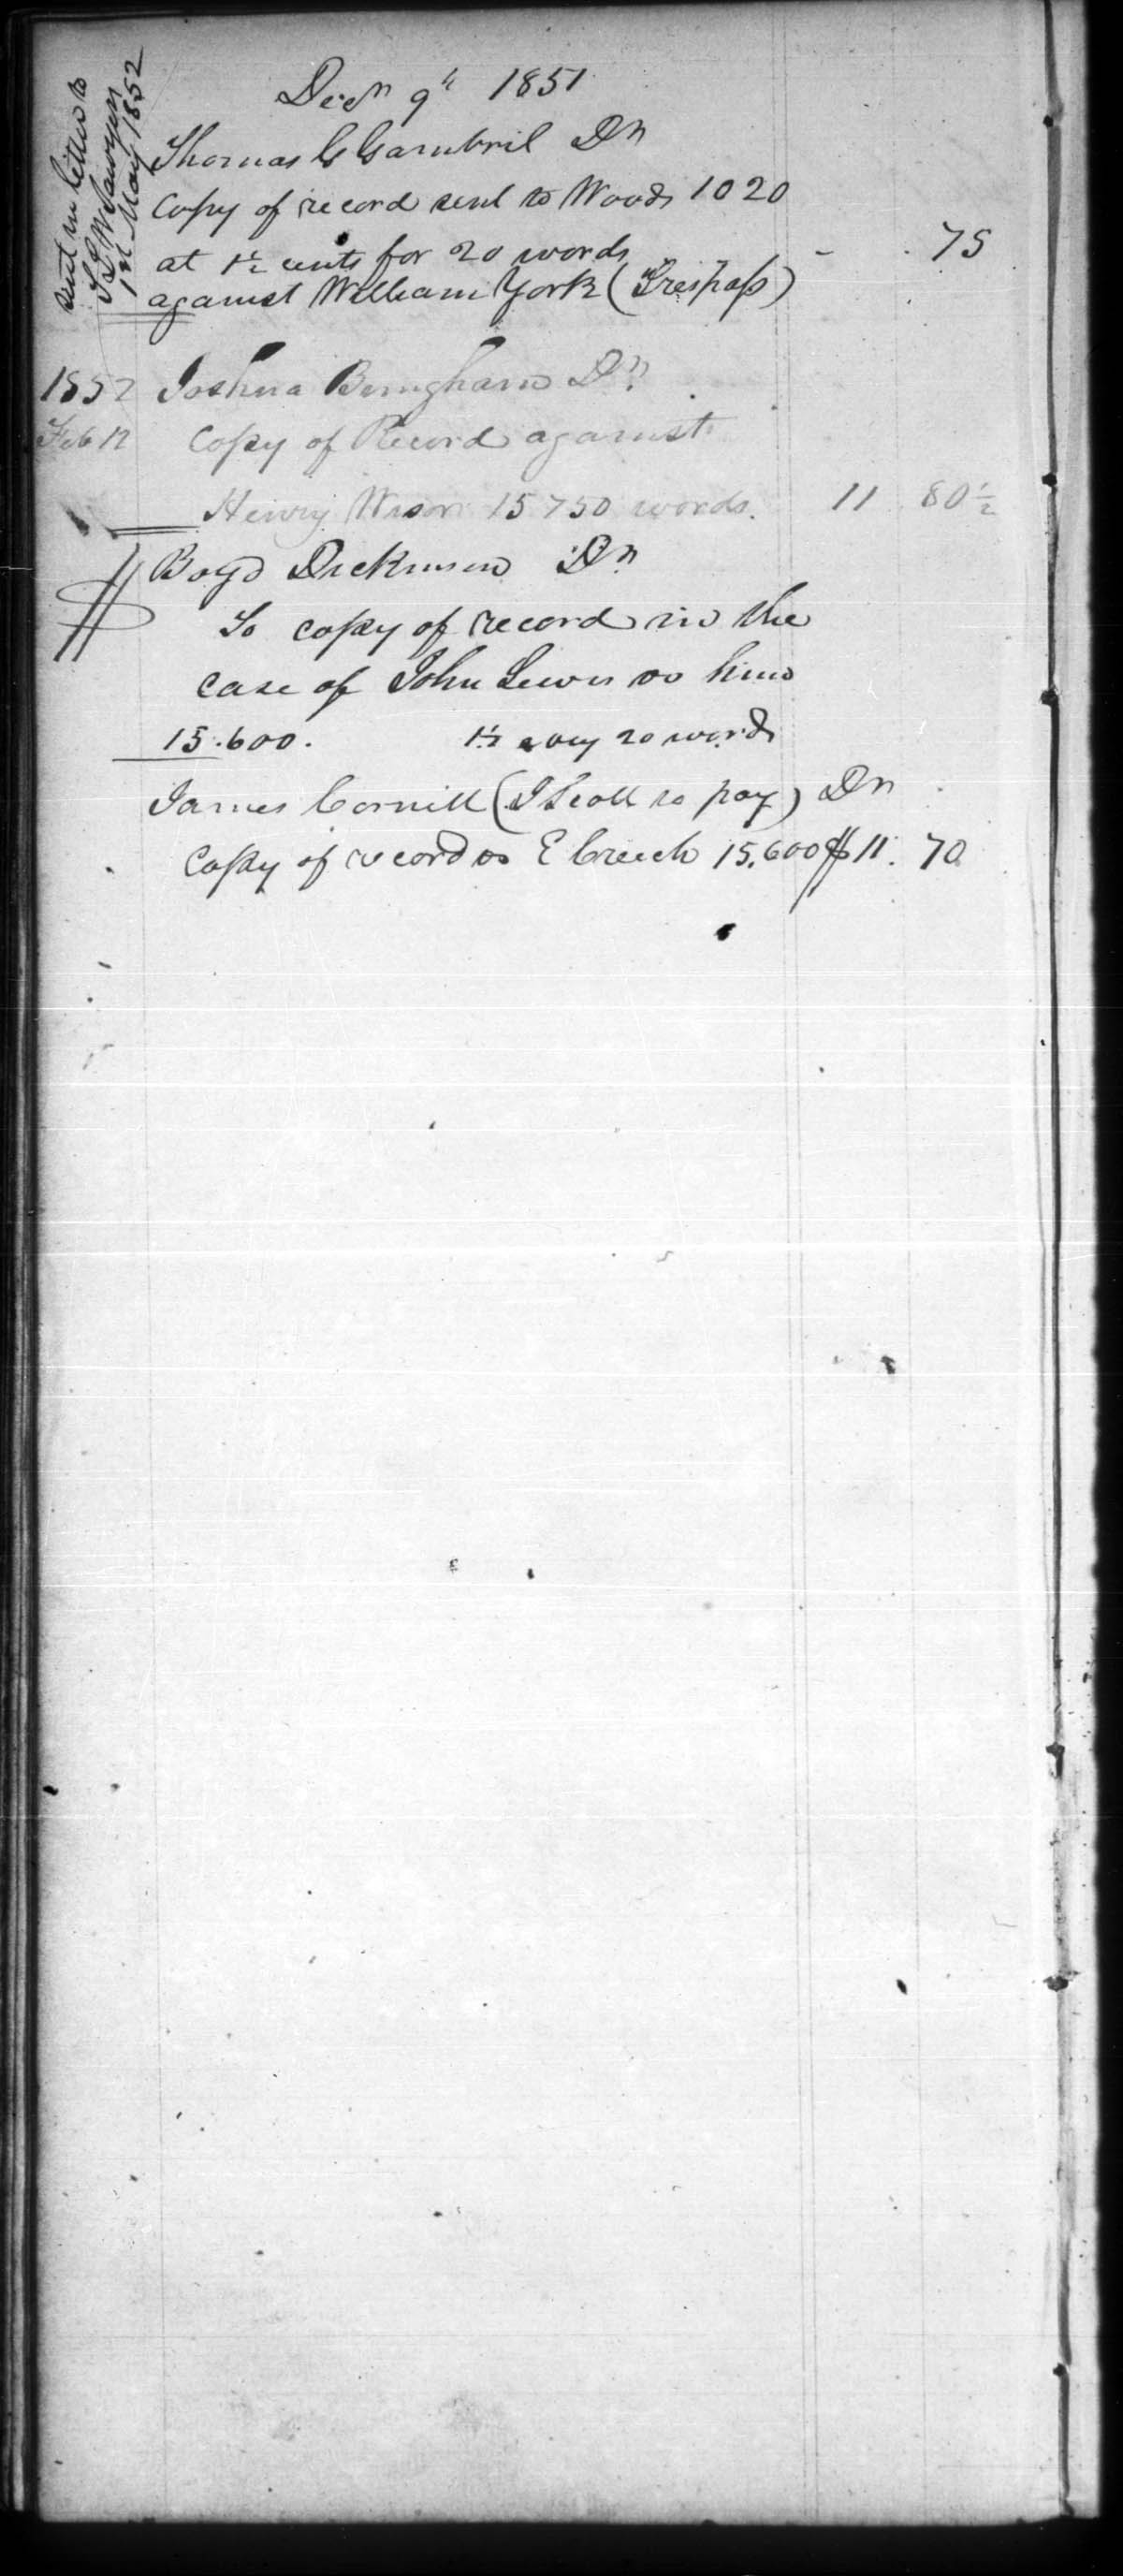 Decr 9th 1851
sent in letter to
S L W Sawyer
1st May 1852
Thomas G Gambril Dr
Copy of record sent to Woods 1020
at 1½ cents for 20 words - 75
against William York (Trespass)
1852 Joshua Bingham Dr
Feb 12 Copy of Record against
Henry 15750 words. 11 80½
Boyd Dickinson Dr
To copy of record in the
case of John Lewis vs him
15.600. 1½ evry 20 words
James Cornill (J Scott to pay) Dr
Copy of record vs E Creech 15.600 $11. 70